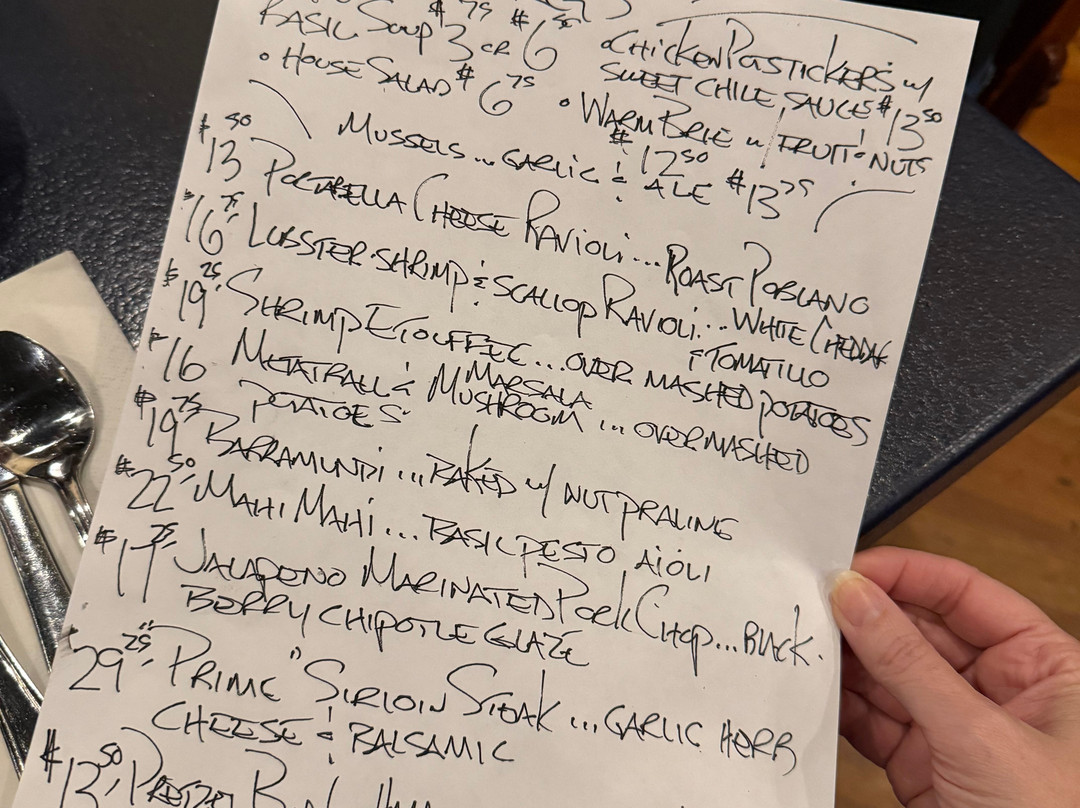 BASIL SOUP $3 75 OR $6 50
• HOUSE SALAD $6 75
• CHICKEN POTSTICKERS w/
SWEET CHILE SAUCE $13 50
• WARM BRIE w/ FRUIT & NUTS
$12 50
MUSSELS... GARLIC & ALE $13 75
$13 50 PORTABELLA CHEESE RAVIOLI... ROAST POBLANO
$16 75 LOBSTER·SHRIMP & SCALLOP RAVIOLI... WHITE CHEDDAR
& TOMATILLO
$19 25 SHRIMP ETOUFFEE... OVER MASHED POTATOES
$16 MEATBALL & MARSALA MUSHROOM... OVER MASHED
POTATOES
$19 75 BARRAMUNDI... BAKED w/ NUT PRALINE
$22 50 MAHI MAHI... BASIL PESTO AIOLI
$17 75 JALAPENO MARINATED PORK CHOP... BLACK.
BERRY CHIPOTLE GLAZE
$29 25 "PRIME" SIRLOIN STEAK... GARLIC HERB
CHEESE & BALSAMIC
$13 50 PRETZEL